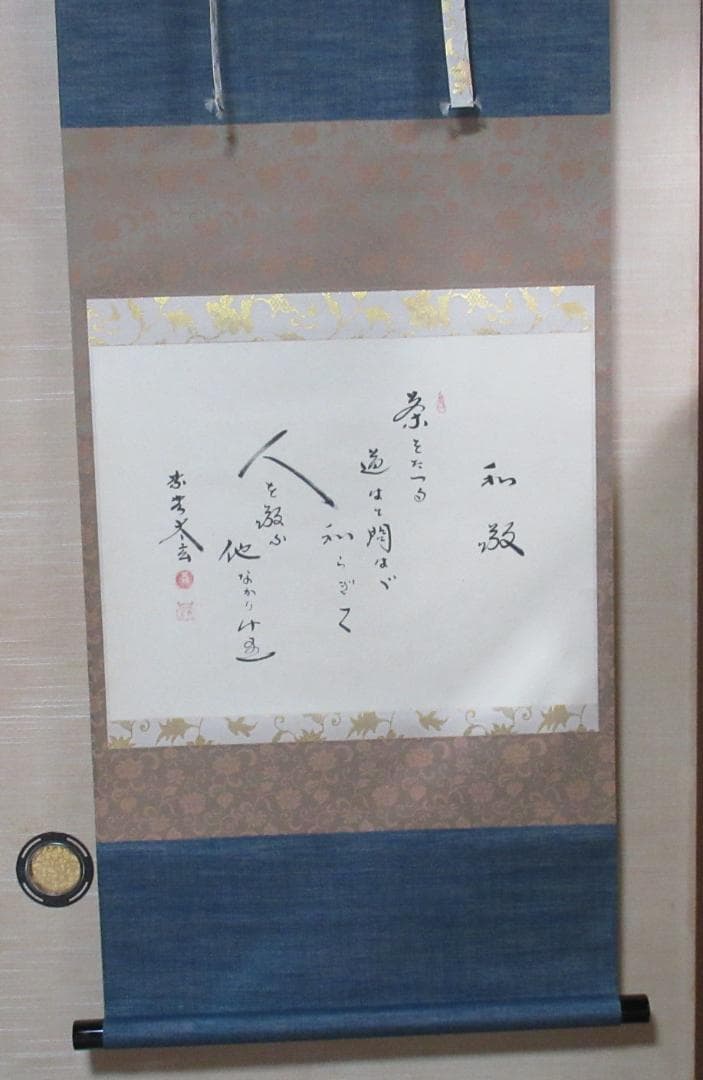 和敬
茶をたつる
道は〻問はば
和らぎて
人を敬ふ
他なかりけり
紫